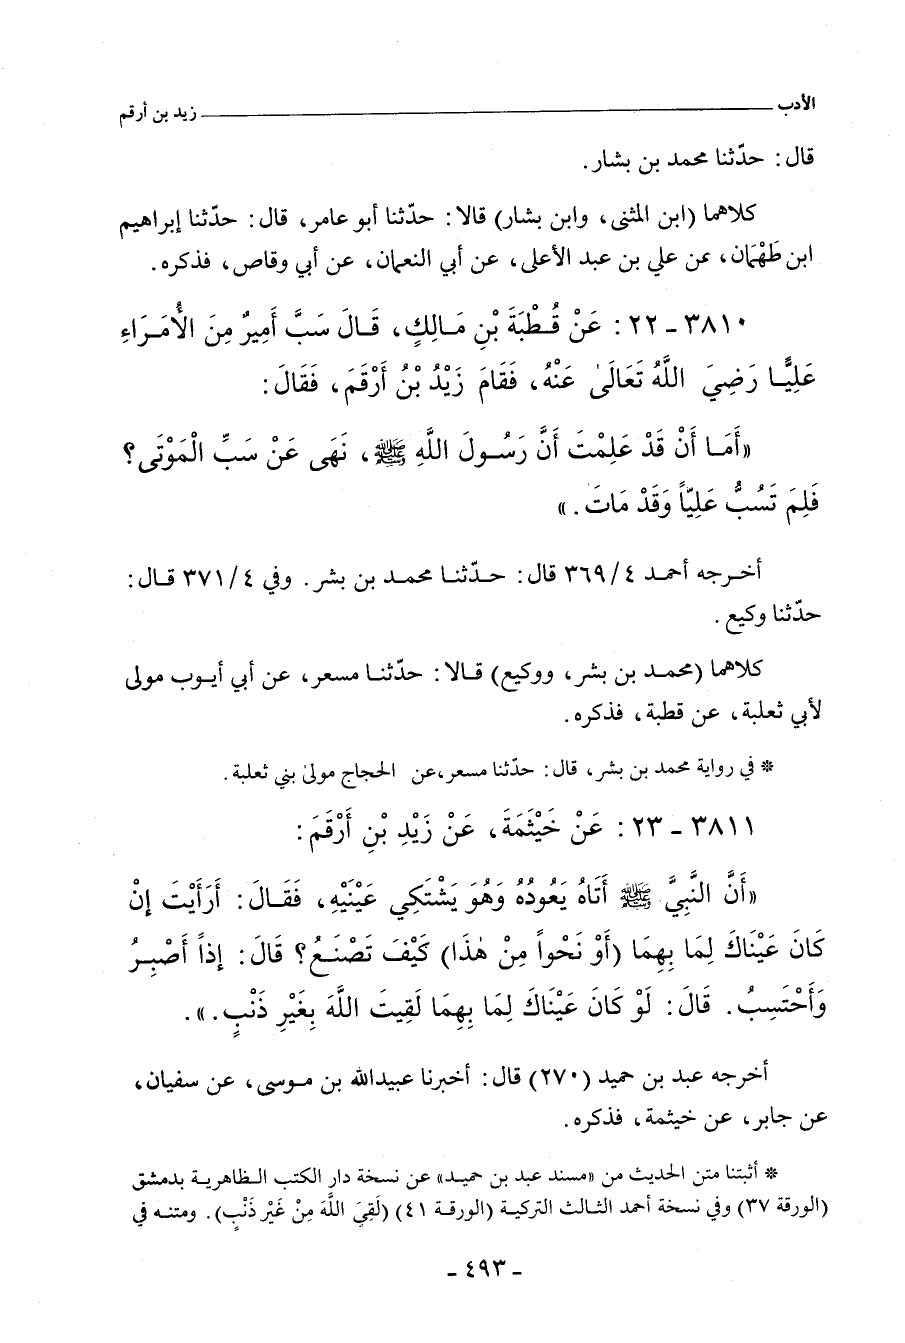 الأدب ــــــــــــ زيد بن أرقم
قال: حدّثنا محمد بن بشار.
كلاهما (ابن المثنى، وابن بشار) قالا: حدّثنا أبو عامر، قال: حدّثنا إبراهيم
ابن طَهْمان، عن علي بن عبد الأعلى، عن أبي النعمان، عن أبي وقاص، فذكره.
٣٨١٠ - ٢٢: عَنْ قُطْبَةَ بْنِ مَالِكٍ، قَالَ سَبَّ أَمِيرٌ مِنَ الْأُمَرَاءِ
عَلِيًّا رَضِيَ اللَّهُ تَعَالَىٰ عَنْهُ، فَقَامَ زَيْدُ بْنُ أَرْقَمَ، فَقَالَ:
«أَمَا أَنْ قَدْ عَلِمْتَ أَنَّ رَسُولَ اللَّهِ ﷺ، نَهَى عَنْ سَبِّ الْمَوْتَى؟
فَلِمَ تَسُبُّ عَلِيّاً وَقَدْ مَاتَ.»
أخرجه أحمد ٤/٣٦٩ قال: حدّثنا محمد بن بشر. وفي ٤/٣٧١ قال:
حدّثنا وكيع.
كلاهما (محمد بن بشر، ووكيع) قالا: حدّثنا مسعر، عن أبي أيوب مولى
لأبي ثعلبة، عن قطبة، فذكره.
* في رواية محمد بن بشر، قال: حدّثنا مسعر،عن الحجاج مولىٰ بني ثعلبة.
٣٨١١ - ٢٣: عَنْ خَيْثَمَةَ، عَنْ زَيْدِ بْنِ أَرْقَمَ:
«أَنَّ النَّبِيَّ ﷺ أَتَاهُ يَعُودُهُ وَهُوَ يَشْتَكِي عَيْنَيْهِ، فَقَالَ: أَرَأَيْتَ إِنْ
كَانَ عَيْنَاكَ لِمَا بِهِمَا (أَوْ نَحْواً مِنْ هٰذَا) كَيْفَ تَصْنَعُ؟ قَالَ: إِذاً أَصْبِرُ
وَأَحْتَسِبُ. قَالَ: لَوْ كَانَ عَيْنَاكَ لِمَا بِهِمَا لَقِيتَ اللَّهَ بِغَيْرِ ذَنْبٍ.».
أخرجه عبد بن حميد (٢٧٠) قال: أخبرنا عبيدالله بن موسى، عن سفيان،
عن جابر، عن خيثمة، فذكره.
* أثبتنا متن الحديث من «مسند عبد بن حميد» عن نسخة دار الكتب الظاهرية بدمشق
(الورقة ٣٧) وفي نسخة أحمد الثالث التركية (الورقة ٤١) (لَقِيَ اللَّهَ مِنْ غَيْرِ ذَنْبٍ). ومتنه في
- ٤٩٣ -